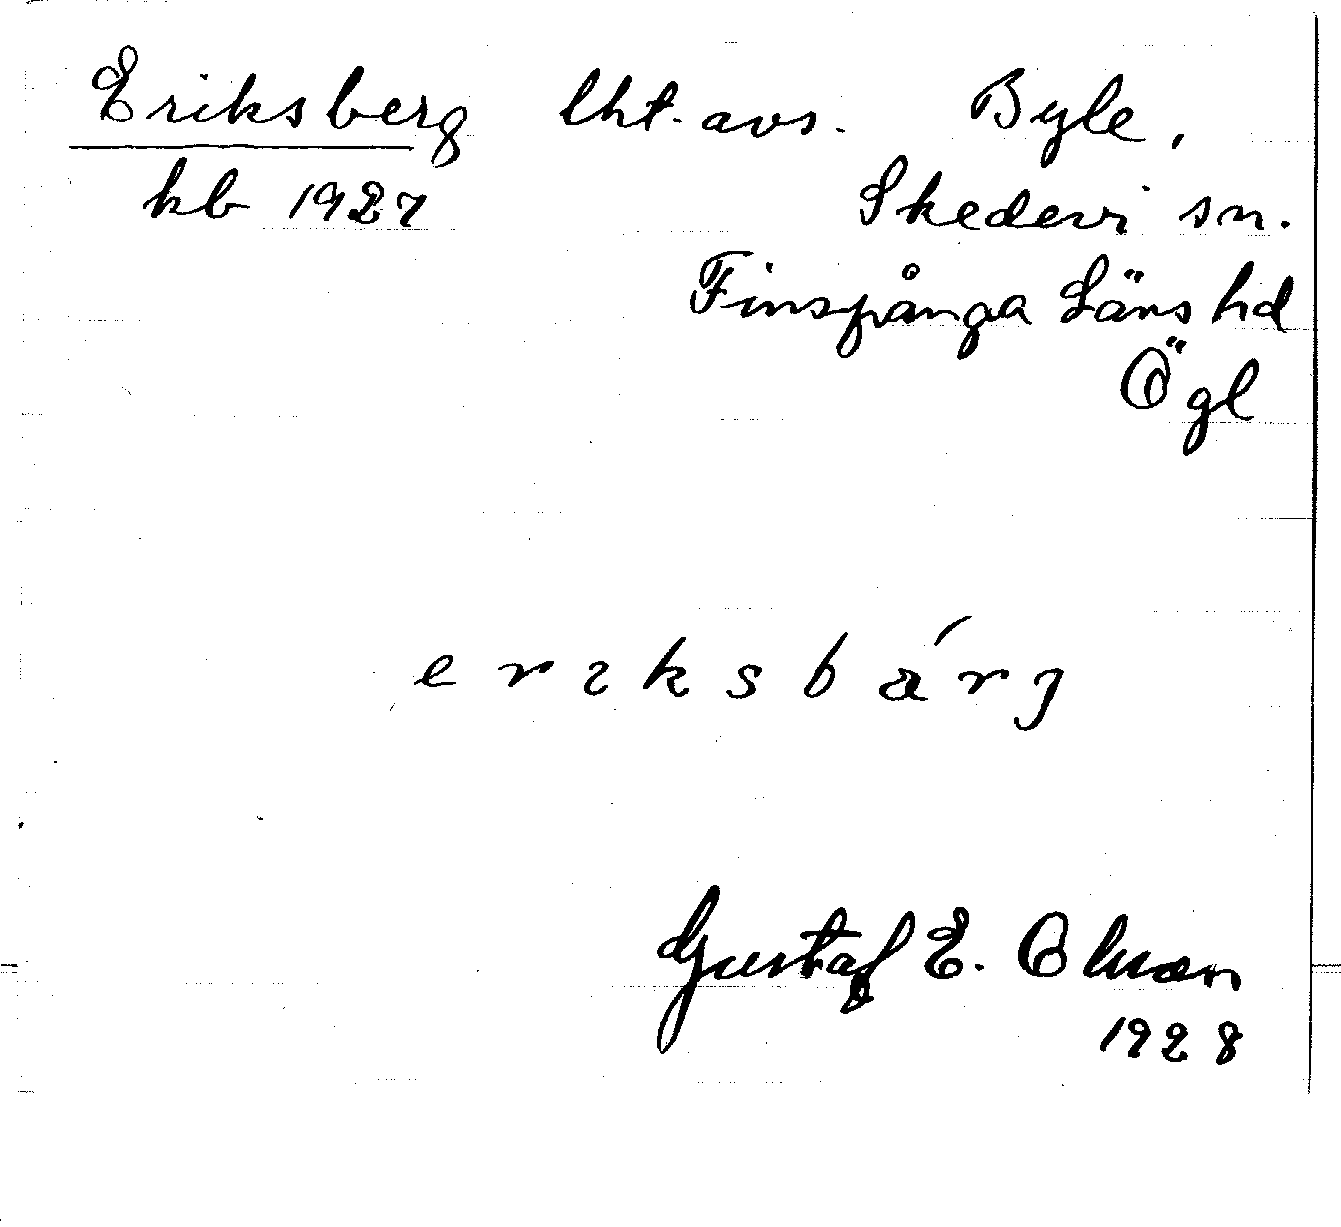 Eriksberg lht. avs. Byle,
kb 1927 Skedevi sn.
Finspånga Läns hd
Ögl
erıksbárg
Gustaf E. Olsson
1928